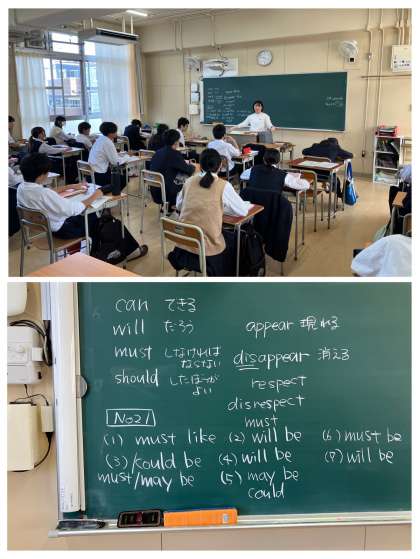 can できる
will だろう
must しなければ
ならない
should したほうが
よい
appear 現れる
disappear 消える
respect
disrespect
No21
must
(1) must like (2) will be (6) must be
(3) /could be (4) will be (7) will be
must/may be (5) may be
could